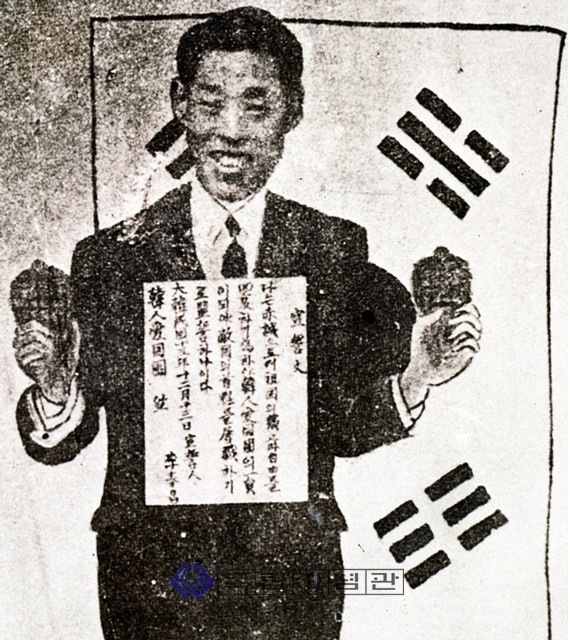 宣誓文
나는赤誠으로써祖國의獨立과自由를
回復하기爲하야韓人愛國團의一員
이되야敵國의首魁를屠戮하기
로盟誓하나이다
大韓民國十三年十二月十三日 宣誓人
李奉昌
韓人愛國團 앞
독립기념관